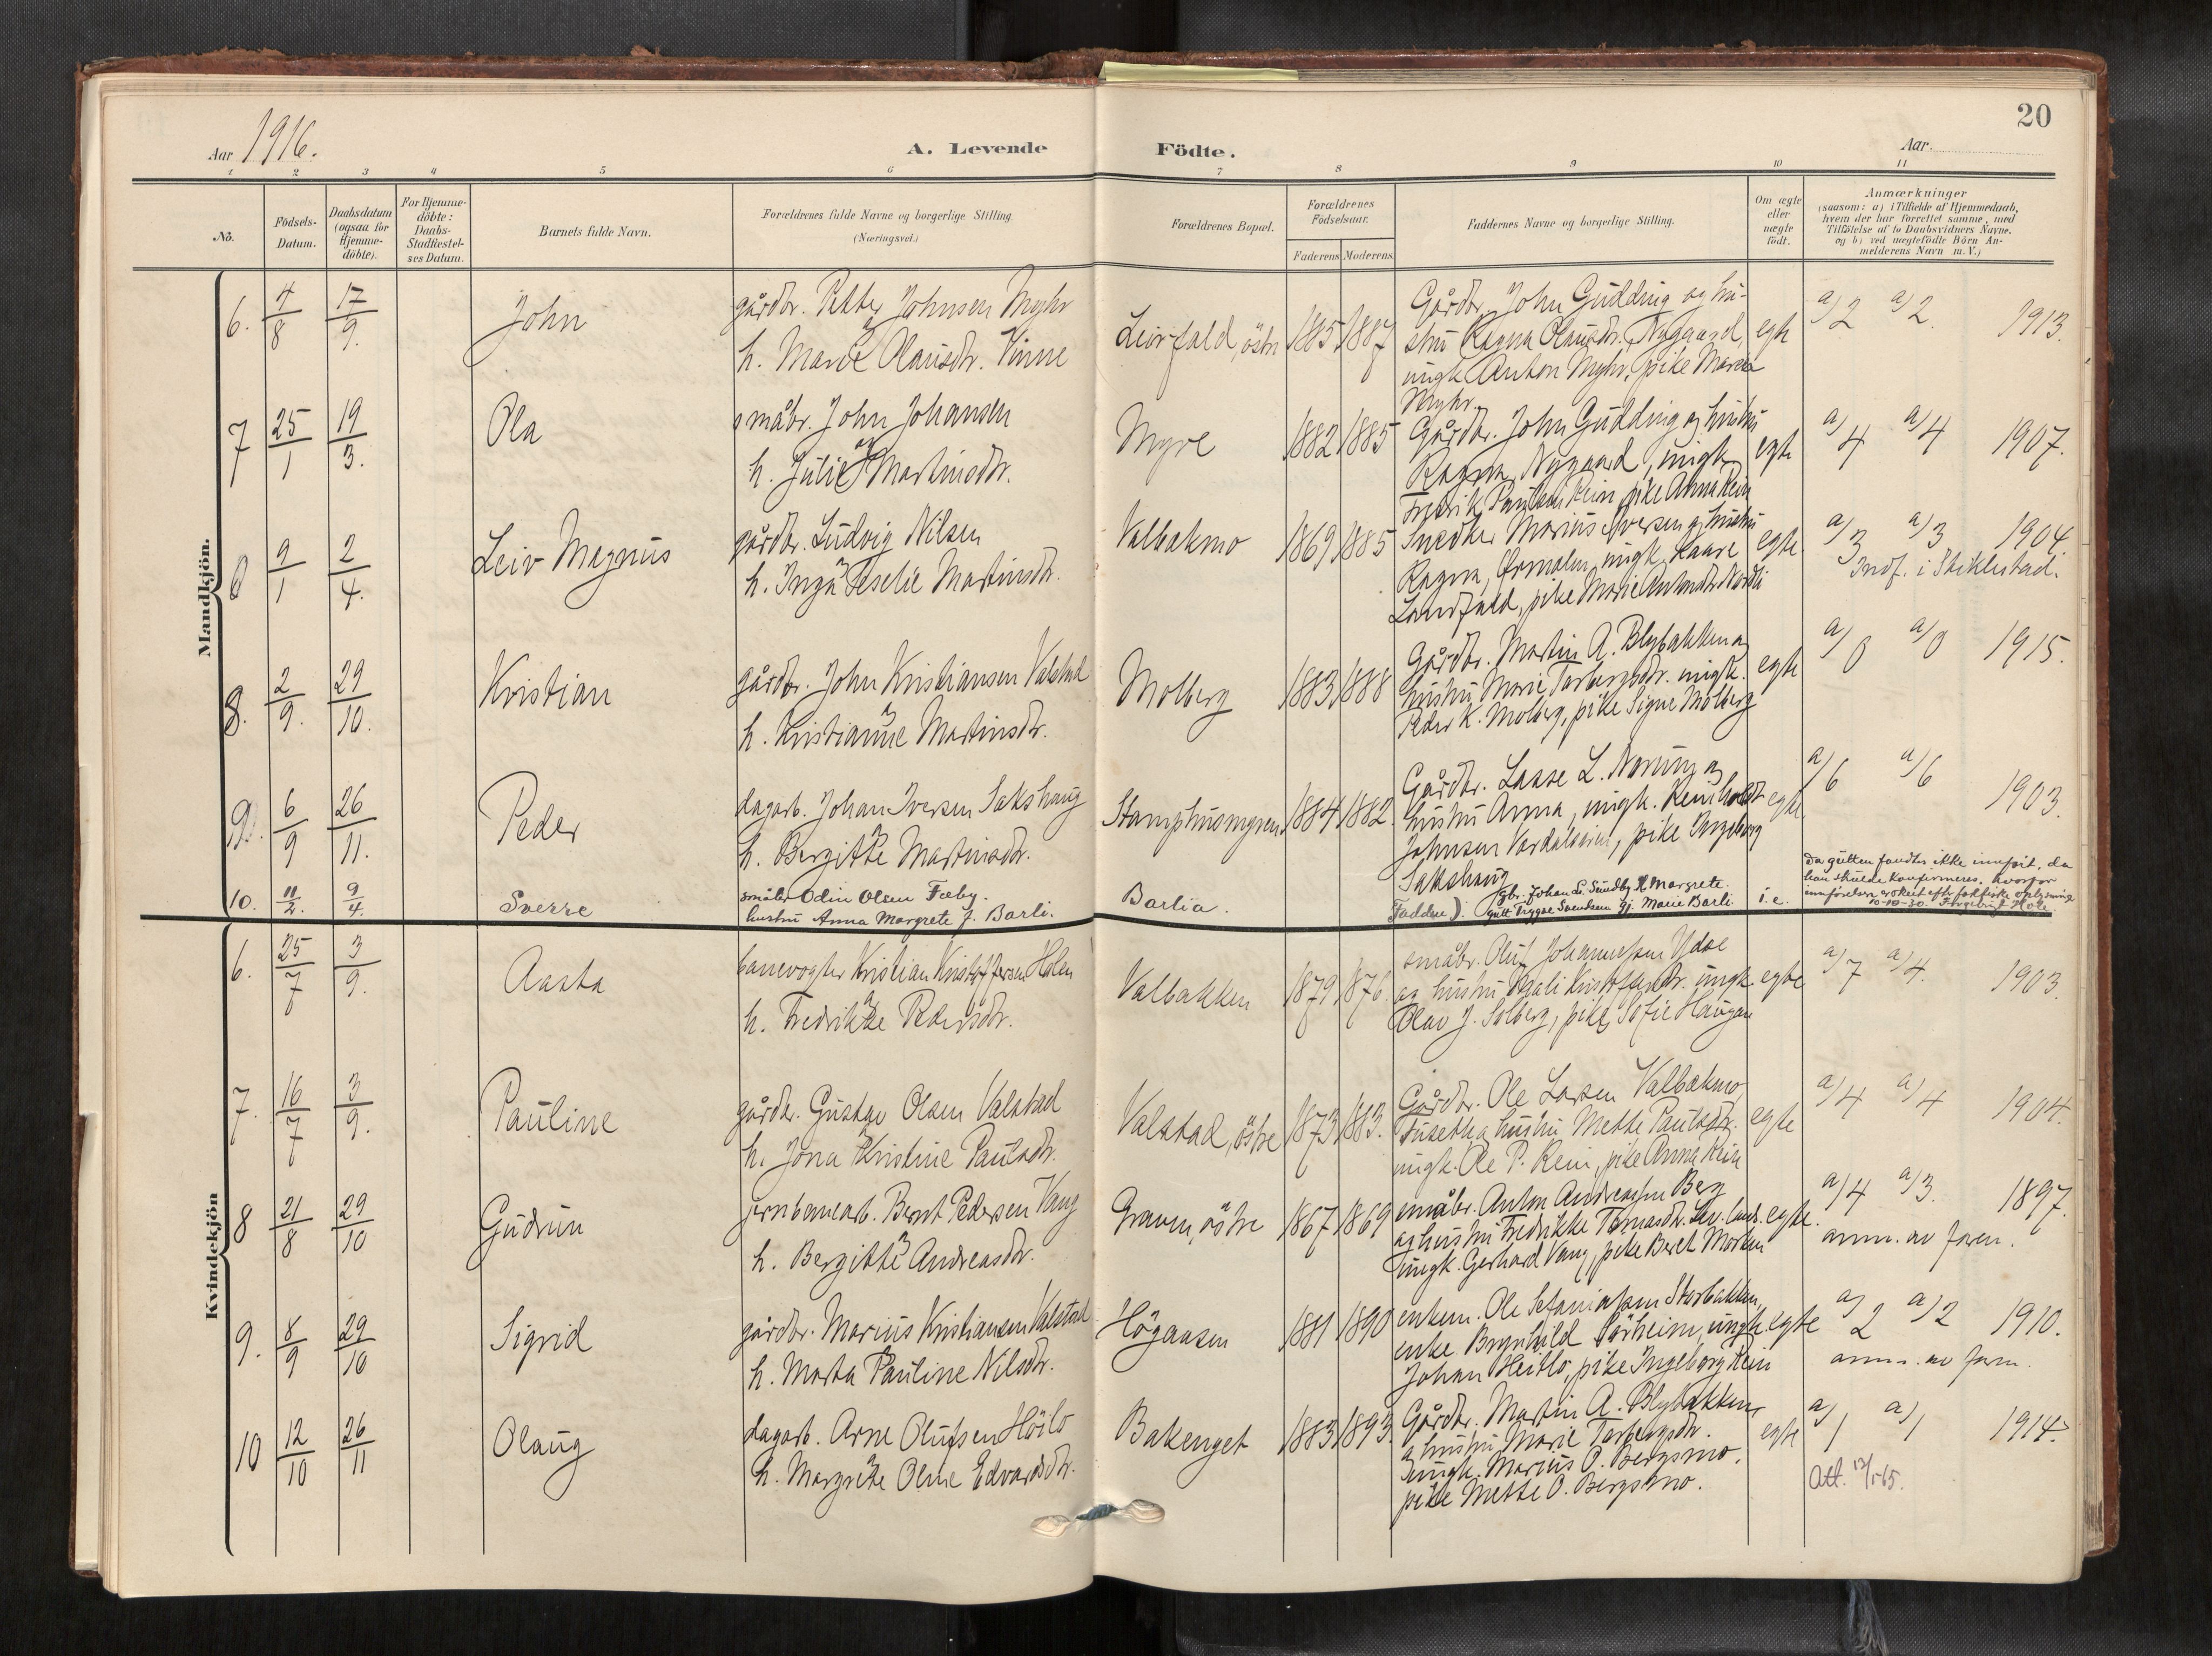 20
Aar 1916.
A. Levende Födte.
Aar
1 2 3 4 5 6 7 8 9 10 11
No.
Födsels-
Datum.
Daabsdatum
(ogsaa for
Hjemme-
döbte).
For Hjemme-
döbte:
Daabs-
Stadfæstel-
ses Datum.
Barnets fulde Navn.
Forældrenes fulde Navne og borgerlige Stilling.
(Næringsvei.)
Forældrenes Bopæl.
Forældrenes
Födselsaar.
Faderens Moderens
Faddernes Navne og borgerlige Stilling.
Om ægte
eller
uægte
født.
Anmærkninger
(saasom: a) i Tilfælde af Hjemmedaab,
hvem der har forrettet samme, med
Tilföielse af to Daabsvidners Navne.
og b) ved uægtefödte Börn An-
melderens Navn m.V.)
Mandkjön.
6. 4/8 17/9. John
gårdbr. Petter Johnsen Myhr
h. Marie Olausdr. Vinne
Leirfald, östre 1885 1887
Gårdbr. John Gudding og hu-
stru Ragna Olausdr. Nygaard,
ungk. Anton Myhr, pike Maren
Myhr.
egte
a/2 a/2. 1913.
7 25/1 19/3. Ola
småbr. John Johansen
og
h. Julie Martinsdr.
Myre 1882 1885
Gårdbr. John Gudding og hustru
Ragna, Nygaard, ungk.
Fredrik Paulsen Rein pike Anna Rein
egte
a/4 a/4 1907.
8 9/1 2/4. Leiv Magnus
gårdbr. Ludvig Nilsen
h. Inga Teselie Martinsdr.
Valbakmo 1869 1885
Snedker Marius Iversen og hustru
Ragna, Ørmelen, ungk. Kaare
Landfald, pike Marie
egte
a/3 a/3 1904.
Indf. i Stiklestad.
8. 2/9. 29/10. Kristian
gårdbr. John Kristiansen Valstad
h. Kristianne Martinsdr.
Molberg 1883 1888
Gårdbr. Martin A. Blybakken og
hustru Marie Torbergsdr. ungk.
Peder K. Molberg, pike Signe Molberg
egte
a/8 a/8 1915.
9. 6/9 26/11. Peder
dagarb. Johan Iversen Sakshaug
h. Bergitte Martinsdr.
Stamphusmyren 1884 1882.
Gårdbr. Lasse L. Norum og
hustru Anna, ungk. Reinholdt
Johnsen Verdalsøren, pike Ingeborg
Sakshaug
egte.
a/6 a/6 1903.
10. 11/2. 9/4. Sverre
småbr Odin Olsen Fæby.
hustru Anna Margrete f. Barli.
Barlia.
Faddere). gbr. Johan L. Sundby H. Margrete.
gutt Trygve Svendsen gj. Marie Barli
i. e.
Da gutten fandtes ikke innført, da
han skulde konfirmeres, hvorfor
innførelsen er skett efter faktiske oplysninger
10-10-30. Ingebrigt Hole
Kvindekjön
6. 25/7 3/9. Aasta
banevogter Kristian Kristoffersen Holen
h. Fredrikke Pedersdr.
Valbakken 1879 1876.
småbr. Oluf Johannessen Ydse
og hustru Magli Kristoffersdr. ungk.
Olav J. Solberg, pike Sofie Haugan
egte
a/7 a/4. 1903.
7. 16/7 3/9. Pauline
gårdbr. Gustav Olsen Valstad
h. Jona Kristine Paulsdr.
Valstad, östre 1873 1883.
Gårdbr. Ole Larsen Valbakmo,
hustru Mette Paulsdr.
ungk. Ole P. Rein, pike Anna Rein
egte
a/4 a/4 1904.
8 21/8 29/10 Gudrun
jernbanearb. Bernt Pedersen Vang
h. Bergitte Andreasdr.
Graven, östre 1867 1869
småbr. Anton Andreassen Berg
og hustru Fredrikke Tomasdr.
ungk. Gerhard Vang, pike Beret Morken
egte.
a/4 a/3. 1897.
anm. av faren.
9. 8/9 29/10 Sigrid
gårdbr. Marius Kristiansen Valstad
h. Marta Pauline Nilsdr.
Högaasen 1881 1890
enkem. Ole Stefaniassen Storbakken,
enke Brynhild Sörheim, ungk.
Johan Heitlo, pike Ingeborg Rein
egte
a/2 a/2 1910.
anm. av faren.
10 12/10 26/11 Olaug
dagarb. Arne Olufsen Höilo
h. Margrete Oline Edvardsdr.
Bakenget 1883 1893.
Gårdbr. Martin A. Blybakken
og hustru Marie Torbergsdr.
ungk. Marius O. Bergsmo.
pike Mette O. Bergsmo.
egte
a/1 a/1 1914.
Att. 13/1-65.